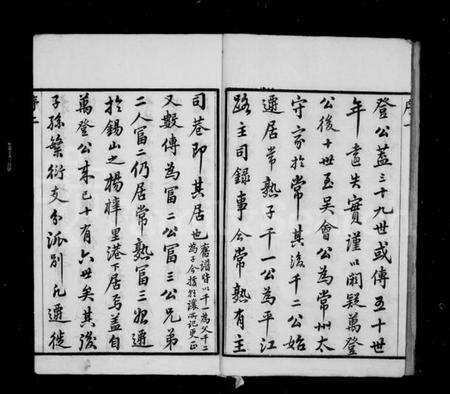 序一
登公蓋三十九世或傳五十世
年遠失實謹以闕疑萬登
公後十世至吳會公為常州太
守家於常其後千二公始
遷居常熟子千一公為平江
路主司錄事今常熟有主
司巷即其居也舊譜皆以千一為父千二
為子今據
又數傳為富二公富三公兄弟
二人富二仍居常熟富三始遷
於錫山之楊樟里港下居焉蓋自
萬登公來已十有六世矣其後
子孫繁衍支分派別凡遷徙
序二